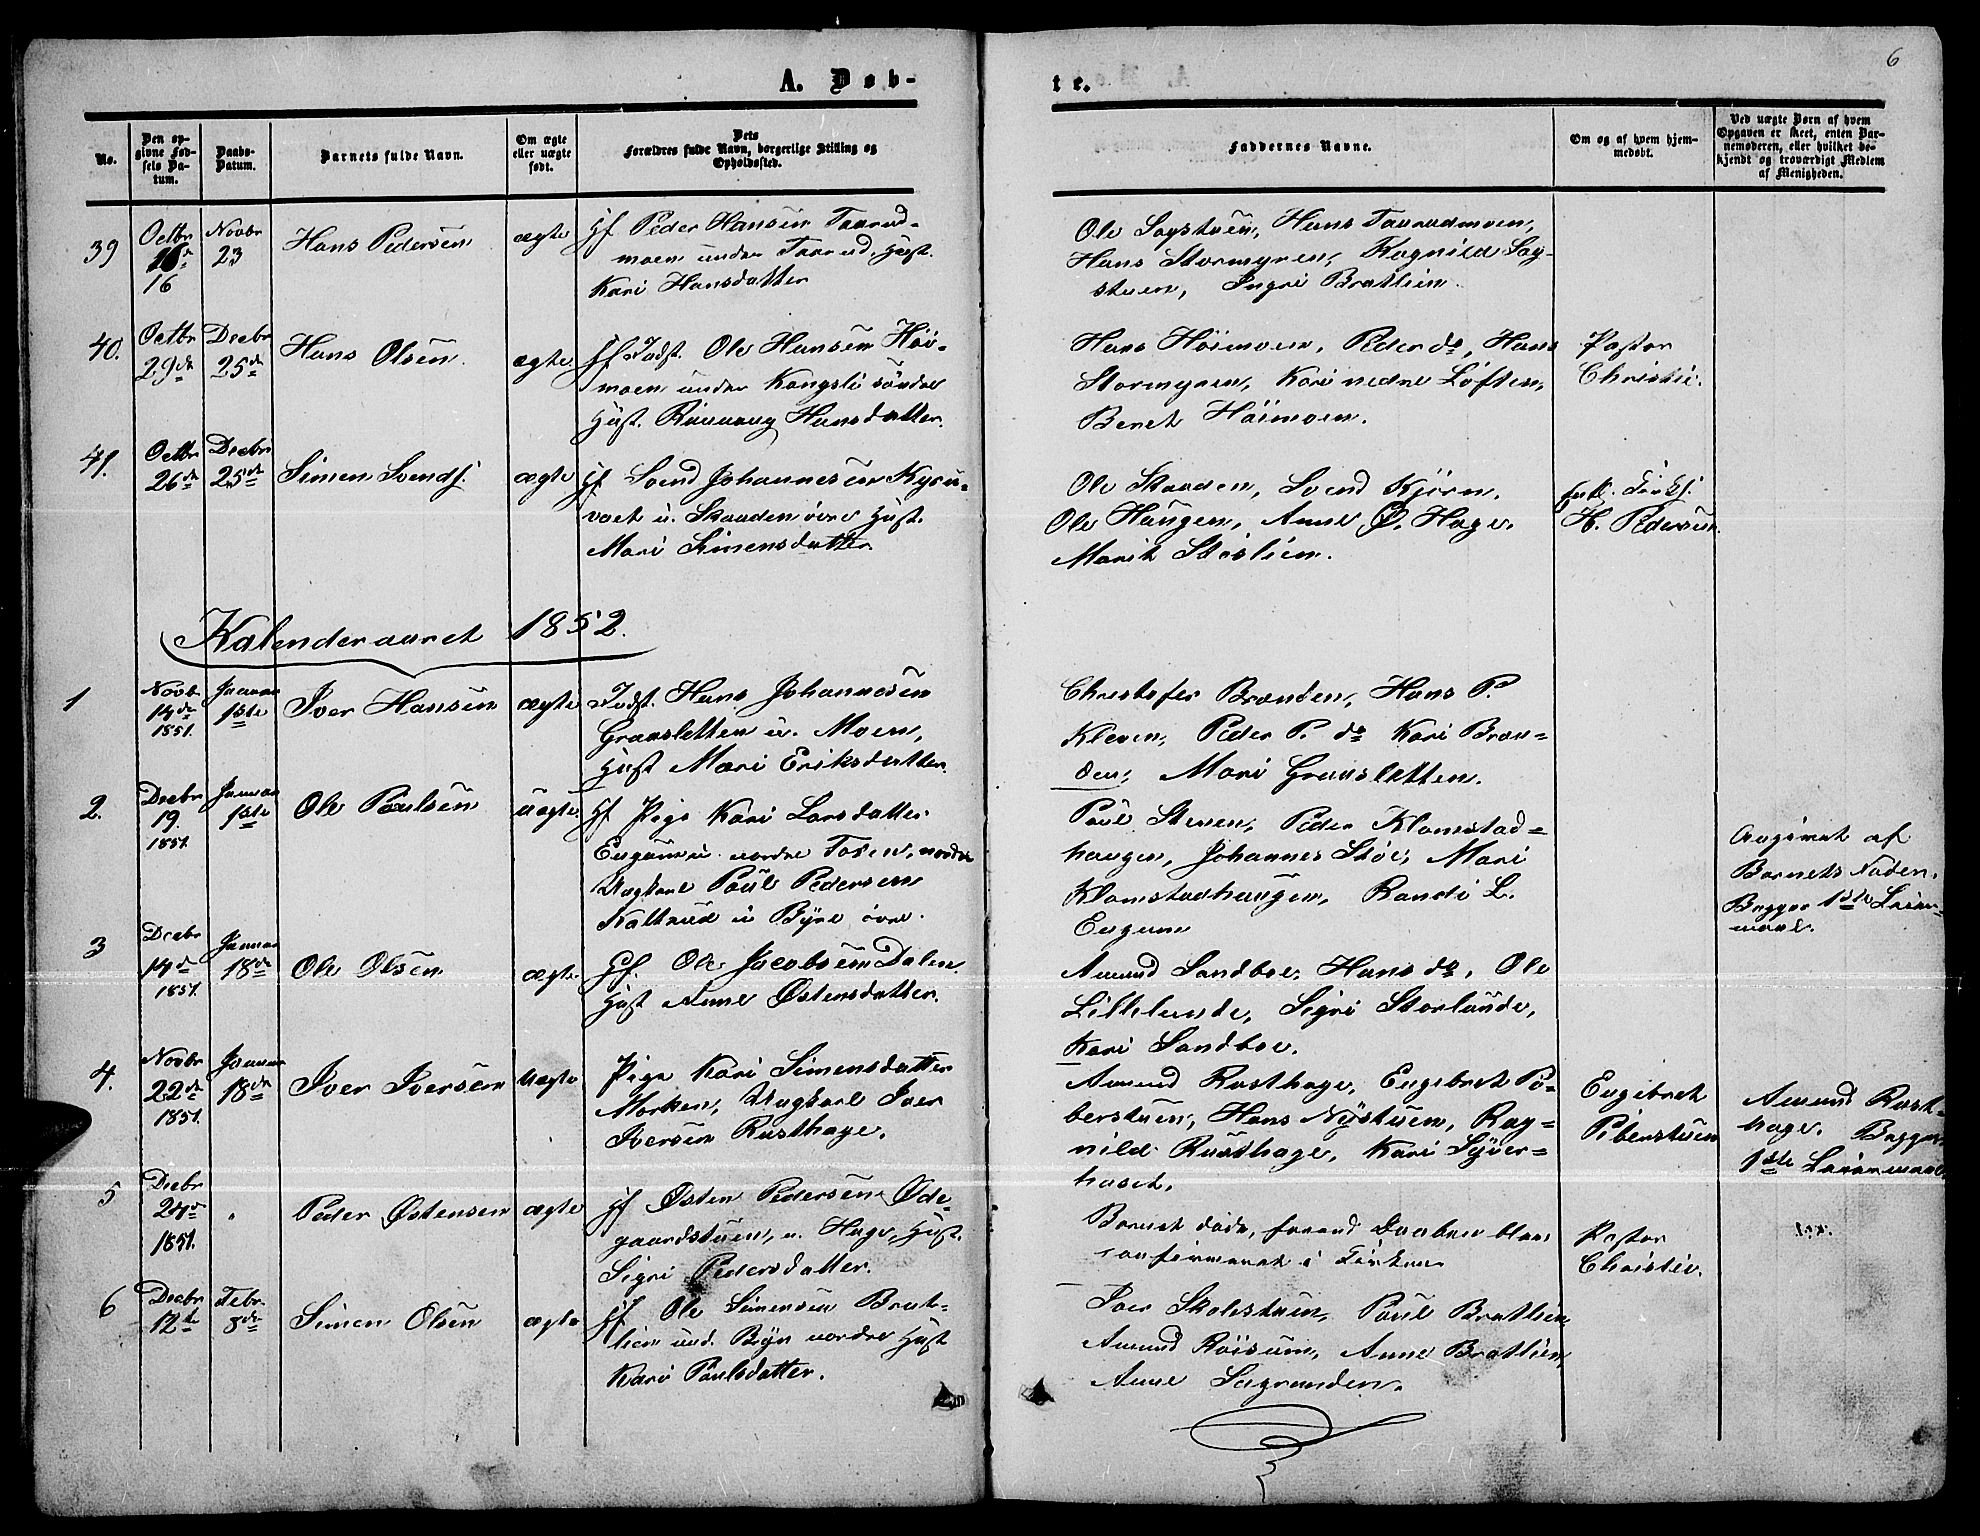 6
A. Døb-
te.
No.
Den op-
givne Fød-
sels Da-
tum.
Daabs-
Datum.
Barnets fulde Navn.
Om ægte
eller uægte
født.
Dets
Forældres fulde Navn, borgerlige Stilling og
Opholdssted.
Faddernes Navne.
Om og af hvem hjem-
medøbt.
Ved uægte Børn af hvem
Opgaven er skeet, enten Bar-
nemoderen, eller hvilket be-
kjendt og troværdigt Medlem
af Menigheden.
39
Octbr
16
Novbr
23
Hans Pedersen
ægte
Gf Peder Hansen Taarud-
moen under Taarud, Hust.
Kari Hansdatter
Ole Sagstuen, Hans Taarudmoen,
Hans Stormyren, Ragnild Sag-
stuen, Ingri Bratlien.
40.
Octbr
29de
Decbr
25de
Hans Olsen
ægte
Gf Indst. Ole Hansen Höi-
moen under Kongsli söndre
Hust. Rönnaug Hansdatter.
Hans Höimoen, Peder do, Hans
Stormyren, Kari nedre Loften,
Beret Höimoen.
Pastor
Christie.
41.
Octbr
26de
Decbr
25de
Simen Svends.
ægte
Gf Svend Johannesen
u. Skaaden övre Hust.
Mari Simensdatter
Ole Skaaden, Svend Kjörn,
Ole Haugen, Anne Ø. Hage,
Marit Stislien.
H. Pedersen
Kalenderaaret 1852.
1
Novbr
14de
1851.
Januar
1ste
Iver Hansen
ægte
Indst. Hans Johannesen
Graasletten u. Moen,
Hust Mari Eriksdatter.
Christofer Brænden, Hans P.
Kleven, Peder P. do Kari Bræn-
den, Mari Graasletten.
2.
Decbr
19.
1851.
Januar
1ste
Ole Paulsen
uægte
Gf Pige Kari Larsdatter
Engum u. nordre Tofte, nordre
Ungkarl Paul Pedersen
Kaltrud u Byre övre.
Paul Steen, Peder Klomstad-
haugen, Johannes Stöe, Mari
Klomstadhaugen, Randi L.
Engum
Angivet af
Barnets Moder.
Begges 1ste Leier-
maal.
3
Decbr
14de
1851.
Januar
18de
Ole Olsen
ægte
Gf. Ole Jacobsen Dalen
Hust Anne Østensdatter.
Amund Sandboe, Hans do, Ole
Lillelunde, Sigri Storlunde,
Kari Sandboe.
4.
Novbr
22de
1851.
Januar
18de
Iver Iversen
Uægte
Pige Kari Simensdatter
Morken, Ungkarl Iver
Iversen Rusthage.
Amund Rusthage, Engebret Pi-
berstuen, Hans Nystuen, Rag-
nild Rusthage, Kari Syver-
huset.
Engebret
Piberstuen
Amund Rust-
hage. Begges
1ste Leiermaal
5
Decbr
24de
1851.
Peder Østensen
ægte
Gf Østen Pedersen Øde-
gaardstuen, u. Hage, Hust.
Sigri Pedersdatter.
Barnet döde, forend Daaben blev
confirmeret i Kirken
Pastor
Christie.
6
Decbr
12te
Febr.
8de
Simen Olsen
ægte
Gf Ole Simensen Brat-
lien und. Byn nordre Hust
Kari Paulsdatter.
Iver Skolstuen, Paul Bratlien
Amund Röisum, Anne Bratlien,
Anne Sagranden.